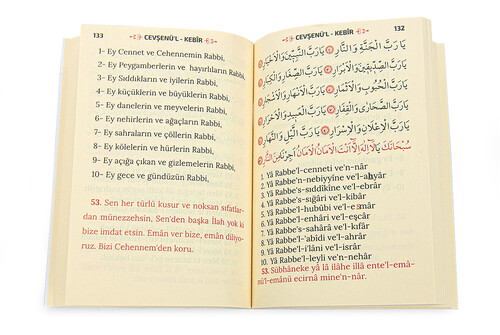 CEVŞENÜ'L - KEBÎR 132
يَا رَبَّ الْجَنَّةِ وَالنَّارِ يَا رَبَّ النَّبِيِّينَ وَالْأَخْيَارِ
يَا رَبَّ الصِّدِّيقِينَ وَالْأَبْرَارِ يَا رَبَّ الصِّغَارِ وَالْكِبَارِ
يَا رَبَّ الْحُبُوبِ وَالْأَثْمَارِ يَا رَبَّ الْأَنْهَارِ وَالْأَشْجَارِ
يَا رَبَّ الصَّحَارَى وَالْقِفَارِ يَا رَبَّ الْعَبِيدِ وَالْأَحْرَارِ
يَا رَبَّ الْإِعْلَانِ وَالْإِسْرَارِ يَا رَبَّ اللَّيْلِ وَالنَّهَارِ
سُبْحَانَكَ يَا لَا إِلٰهَ إِلَّا أَنْتَ الْأَمَانُ الْأَمَانُ أَجِرْنَا مِنَ النَّارِ
1. Yâ Rabbe'l-cenneti ve'n-nâr
2. Yâ Rabbe'n-nebiyyîne ve'l-ahyâr
3. Yâ Rabbe's-sıddîkîne ve'l-ebrâr
4. Yâ Rabbe's-sığâri ve'l-kibâr
5. Yâ Rabbe'l-hubûbi ve'l-esmâr
6. Yâ Rabbe'l-enhâri ve'l-eşcâr
7. Yâ Rabbe's-sahârâ ve'l-kıfâr
8. Yâ Rabbe'l-'abîdi ve'l-ahrâr
9. Yâ Rabbe'l-i'lâni ve'l-isrâr
10. Yâ Rabbe'l-leyli ve'n-nehâr
53. Sübhâneke yâ lâ ilâhe illâ ente'l-emâ-
nü'l-emânü ecirnâ mine'n-nâr.
133 CEVŞENÜ'L - KEBÎR
1- Ey Cennet ve Cehennemin Rabbi,
2- Ey Peygamberlerin ve hayırlıların Rabbi,
3- Ey Sıddıkların ve iyilerin Rabbi,
4- Ey küçüklerin ve büyüklerin Rabbi,
5- Ey danelerin ve meyvelerin Rabbi,
6- Ey nehirlerin ve ağaçların Rabbi,
7- Ey sahraların ve çöllerin Rabbi,
8- Ey kölelerin ve hürlerin Rabbi,
9- Ey açığa çıkan ve gizlemelerin Rabbi,
10- Ey gece ve gündüzün Rabbi,
53. Sen her türlü kusur ve noksan sıfatlar-
dan münezzehsin, Sen'den başka İlah yok ki
bize imdat etsin. Emân ver bize, emân diliyo-
ruz. Bizi Cehennem'den koru.